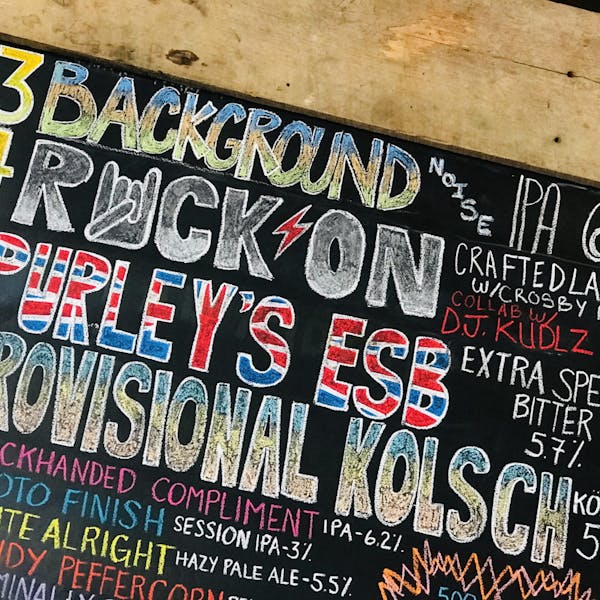 3 BACKGROUND NOISE IPA 6
4 ROCK ON CRAFTED LA
W/CROSBY
COLLAB W/
D.J. KUDLZ
PURLEY'S ESB EXTRA SPE
BITTER
5.7%
ROVISIONAL KOLSCH KÖ
5
CKHANDED COMPLIMENT IPA-6.2%
OTO FINISH SESSION IPA-3%
TE ALRIGHT HAZY PALE ALE-5.5%
DY PEFFERCORN
MINALLY
500